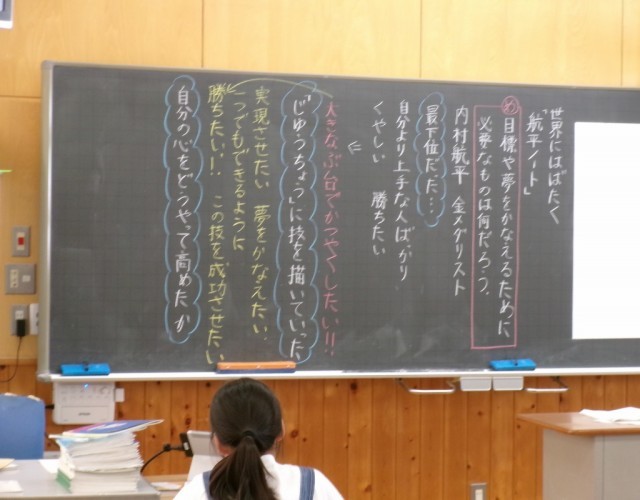 世界にはばたく
「航平ノート」
め 目標や夢をかなえるために、
必要なものは何だろう。
内村航平 金メダリスト
最下位だった…
自分より上手な人ばかり
くやしい 勝ちたい
大きなぶ台でかつやくしたい!!
「じゆうちょう」に技を描いていった
実現させたい 夢をかなえたい。
一つでもできるように
勝ちたい!! この技を成功させたい
自分の心をどうやって高めたか